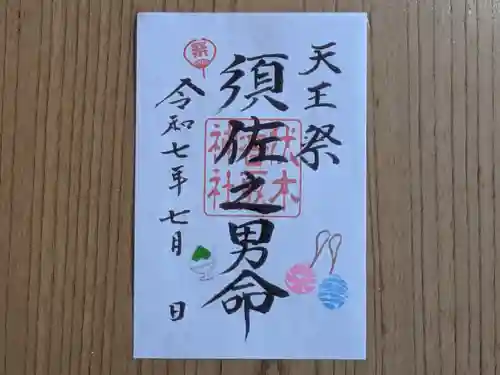 天王祭
須佐之男命
令和七年七月 日
祭